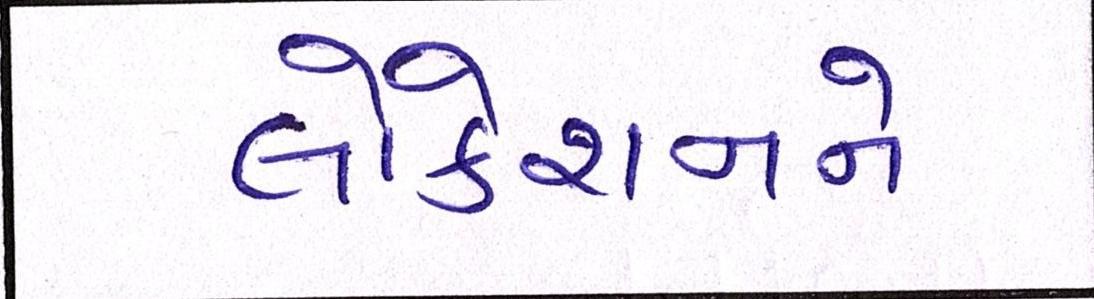 લોકેશનને